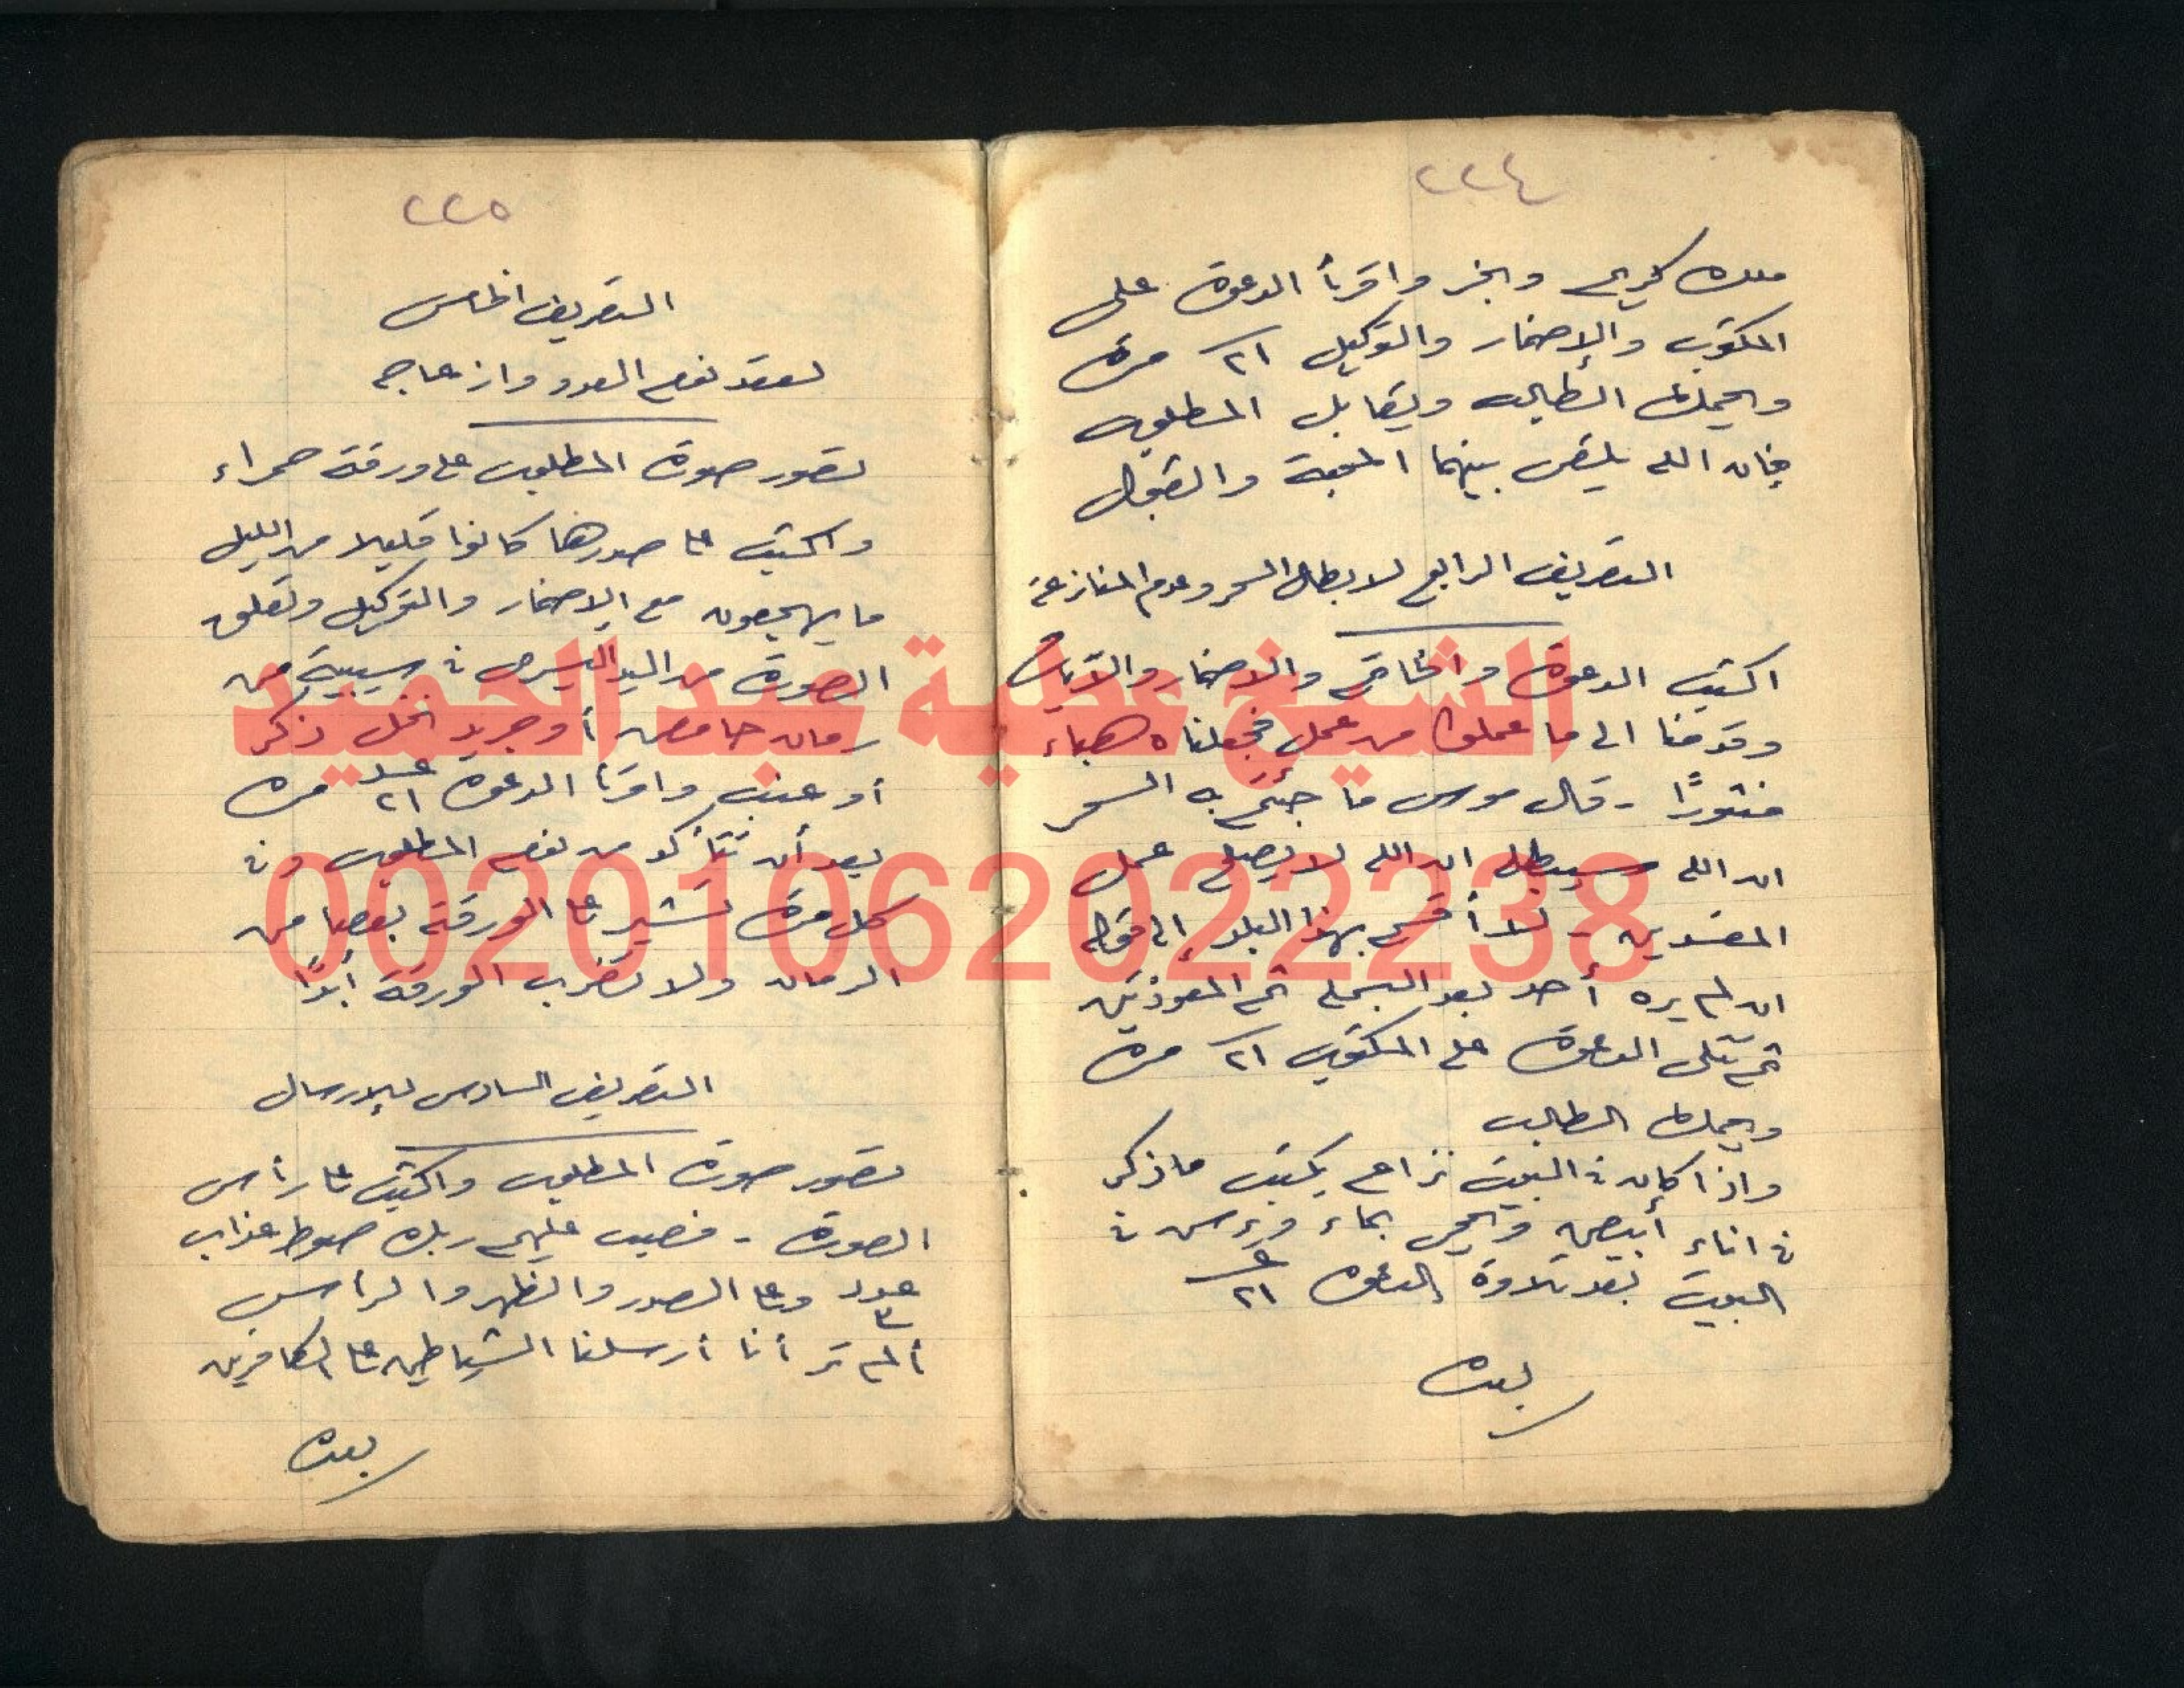 ٢٢٤
ملك كريم وبخر واقرأ الدعوة على
المكتوب والإضمار والتوكيل ٢١ مرة
ويحملها الطالب ويقابل المطلوب
فإن الله يلقى بينهما المحبة والقبول
التصريف الرابع لابطال السحر وعدم المنازعة
اكتب الدعوة والخاتم والاضمار والآيات
وقدمنا الى ما عملوا من عمل فجعلناه هباء
منثورًا - قال موسى ما جئتم به السحر
ان الله سيبطله ان الله لا يصلح عمل
المفسدين - لا أقسم بهذا البلد إلى قوله
ان لم يره أحد بعد البسملة ثم المعوذتين
ثم تتلى الدعوة على المكتوب ٢١ مرة
ويحملها الطالب
واذا كان فى البيت نزاع يكتب ما ذكر
فى اناء أبيض ويمحى بماء ويرش فى
البيت بعد تلاوة الدعوة ٢١
بعده
٢٢٥
التصريف الخامس
لعقد نوم العدو وازعاجه
تصور صورة المطلوب على ورقة حمراء
واكتب على صدرها كانوا قليلا من الليل
ما يهجعون مع الإضمار والتوكيل وتعلق
الصورة من اليد اليسرى فى سيبية من
رمان حامض أو جريد نخل ذكر
أو عنب واقرأ الدعوة عدد ٢١ مرة
بعد أن تتأكد من نوم المطلوب وفى
كل مرة تشير على الورقة بعصا من
الرمان ولا تضرب الورقة أبدًا
التصريف السادس للإرسال
تصور صورة المطلوب واكتب على رأس
الصورة - فصب عليهم ربك صوط عذاب
عدد وعلى الصدر والظهر والرأس
ألم تر أنا أرسلنا الشياطين على الكافرين
بعده
الشيخ عطية عبد الحميد
00201062022238